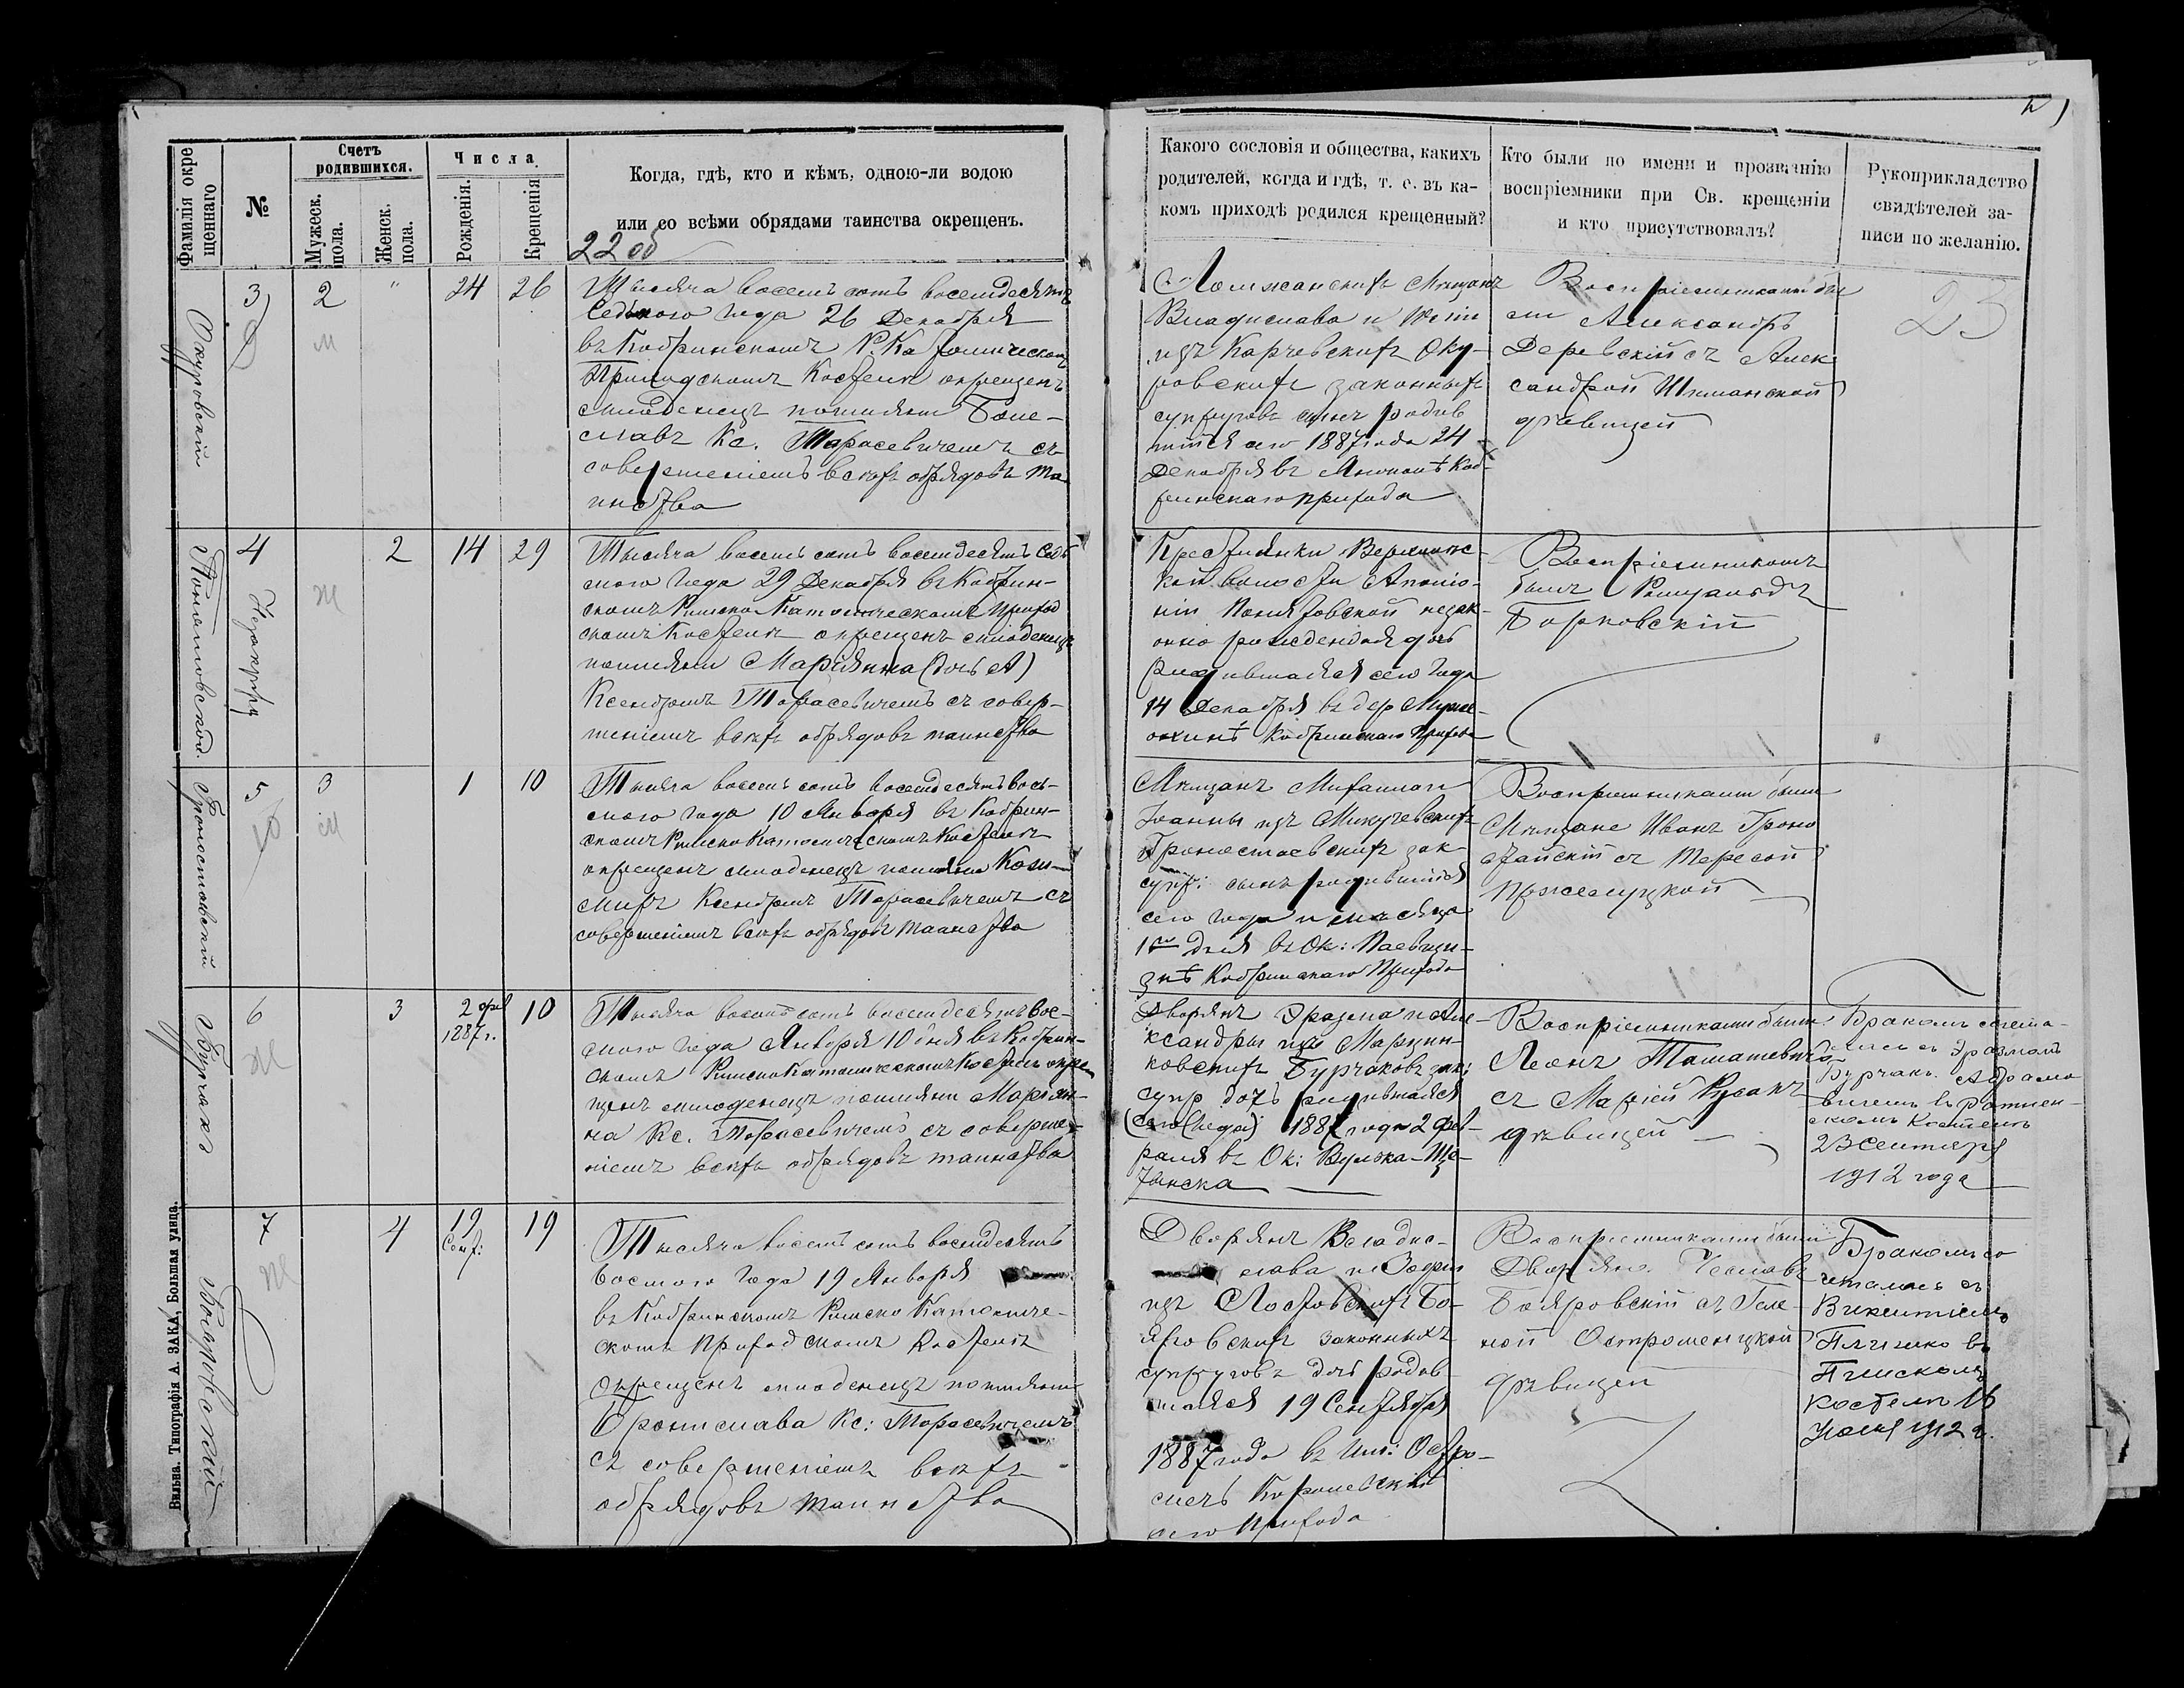 Фамилія окре
щеннаго
№
Счетъ
родившихся.
Мужеск.
пола.
Женск.
пола.
Числа
Рожденія.
Крещенія
Когда, гдѣ, кто и кѣмъ, одною-ли водою
или со всѣми обрядами таинства окрещенъ.
22 об
Какого сословія и общества, какихъ
родителей, когда и гдѣ, т. е. въ ка-
комъ приходѣ родился крещенный?
Кто были по имени и прозванію
воспріемники при Св. крещеніи
и кто присутствовалъ?
Рукоприкладство
свидѣтелей за-
писи по желанію.
23
Окуровскій
3
2
"
24
26
м
Тысяча восемь сотъ восемдесятъ
седьмого года 26 Декабря
въ Кобринскомъ Р. Католическомъ
Приходскомъ Костелѣ окрещенъ
младенецъ имянемъ Боле-
славъ Кс. Тарасевичемъ съ
совершеніемъ всѣхъ обрядовъ та-
инства
Мѣщанъ
Владислава и
изъ Карчевскихъ Оку-
ровскихъ законныхъ
супруговъ сынъ родив
шійся сего 1887 года 24
Декабря въ Коб-
ринскаго прихода
Воспріемниками бы
ли Александръ
Деревскій съ Алек
сандрой Шиманской
дѣвицей
4
Незакрож
2
14
29
Ж
Тысяча восемь сотъ восемдесятъ седь
мого года 29 Декабря въ Кобрин-
скомъ Римско Католическомъ Приход
скомъ Костелѣ окрещенъ младенецъ
имянемъ Маріянна (дочь А)
Ксендзомъ Тарасевичемъ съ совер-
шеніемъ всѣхъ обрядовъ таинства
Крестьянки
кой волости Аполо-
ніи незак-
онно рожденная дочь
родившаяся сего года
14 Декабря въ дер
Кобринскаго Прихода
Воспріемникомъ
былъ Ромуальдъ
Борковскій
Гроностайскій
5
3
1
10
м
Тысяча восемь сотъ восемдесятъ вось-
мого года 10 Января въ Кобрин-
скомъ Римско Католическомъ Костелѣ
окрещенъ младенецъ имянемъ Кази-
миръ Ксендзомъ Тарасевичемъ съ
совершеніемъ всѣхъ обрядовъ таинства
Мѣщанъ Михаила и
Іоанны изъ
Гроностаевскихъ зак-
супр: сынъ родившійся
сего года и мѣсяца
1го дня въ Ок:
Кобринскаго Прихода
Воспріемниками были
Мѣщане Иванъ Гроно
стайскій съ Тересой
Бурчакъ
6
3
2 фев
1887 г.
10
Ж
Тысяча восемь сотъ восемдесятъ вос-
мого года Января 10 дня въ Кобрин-
скомъ Римско Католическомъ Костелѣ окре
щенъ младенецъ имянемъ Маріян-
на Кс. Тарасевичемъ съ соверше-
ніемъ всѣхъ обрядовъ таинства
Дворянъ Эразма и Але-
ксандры изъ Марцин-
ковскихъ Бурчаковъ зак:
супр дочь родившаяся
(сего года) 1887 года 2 фев-
раля въ Ок: Вулька-Ще-
Воспріемниками были
Леонъ Томашевичъ
съ Маріей Русакъ
дѣвицей
Бракомъ сочета-
лись съ Эразмомъ
Бурчакъ Абрамо
вичемъ въ
скомъ Костелѣ
23 Сентября
1912 года
Бояровскій
7
4
19
Сент:
19
Ж
Тысяча восемь сотъ восемдесятъ
восмого года 19 Января
въ Кобринскомъ Римско Католиче-
скомъ Приходскомъ Костелѣ
окрещенъ младенецъ имянемъ
Бронислава Кс: Тарасевичемъ
съ совершеніемъ всѣхъ
обрядовъ таинства
Дворянъ Владис-
лава и Зофіи
изъ Бо-
яровскихъ законныхъ
супруговъ дочь родив
шаяся 19 Сентября
1887 года въ Им: Остро-
мечъ
аго Прихода
Воспріемниками были
Дворяне Чеславъ
Бояровскій съ Геле-
ной Остроменцкой
дѣвицей
Бракомъ со
четалась съ
Викентіемъ
въ
Пинскомъ
Костелѣ 16
1912 г.
Вильна. Типографія А. ЗАКА, Большая улица.